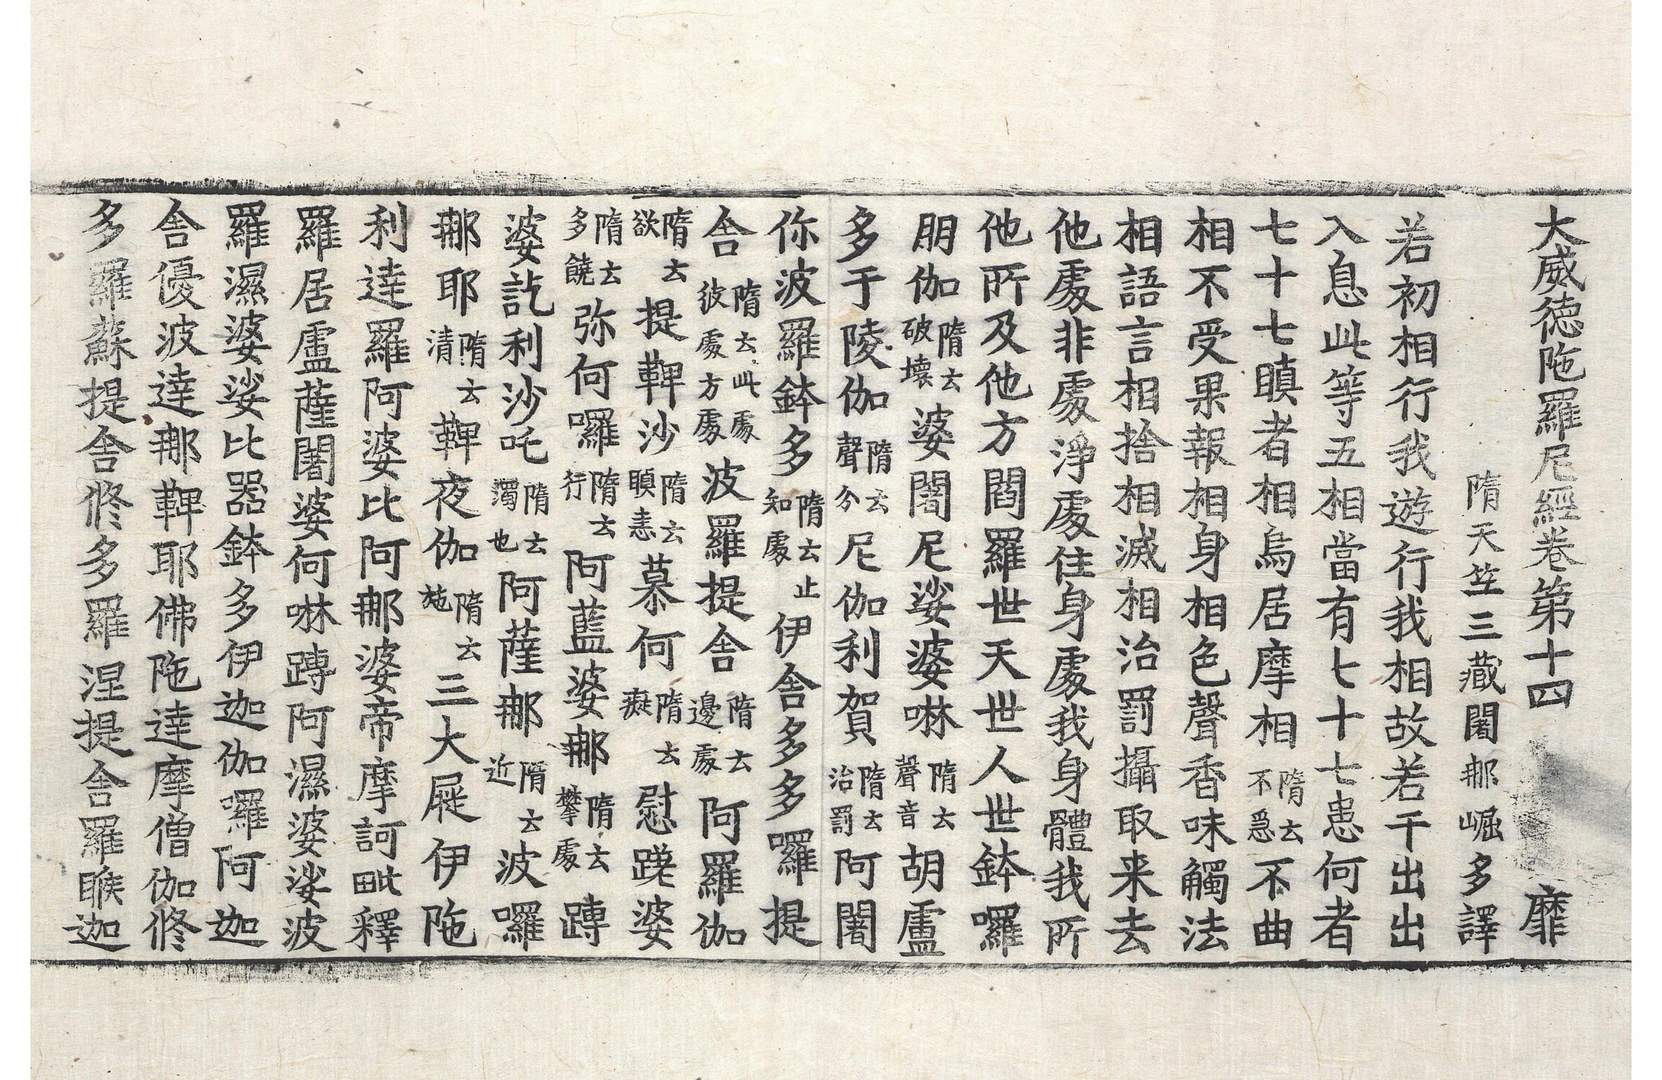 大威德陁羅尼經卷第十四　靡
隋天竺三藏闍那崛多譯
若初相行我遊行我相故若干出出
入息此等五相當有七十七患何者
七十七瞋者相烏居摩相隋云不爲不曲
相不受果報相身相色聲香味觸法
相語言相捨相滅相治罰攝取来去
他處非處淨處住身處我身體我所
他所及他方閻羅世天世人世鉢囉
朋伽隋云破壞婆闍尼娑婆啉隋云聲音胡盧
多于陵伽隋云聲分尼伽利賀隋云治罰阿闍
你波羅鉢多隋云止知處伊舍多多囉提
舍隋云此處彼處方處波羅提舍隋云邊處阿羅伽
隋云欲提鞞沙隋云瞋恚慕何隋云癡慰蹉婆
隋云多饒弥何囉隋云行阿藍婆那隋云攀處蹲
婆訖利沙吒隋云濁也阿薩那隋云近波囉
那耶隋云清鞞夜伽隋云施三大屣伊陁
利達羅阿婆比阿那婆帝摩訶毗釋
羅居盧薩闍婆何啉蹲阿濕婆娑波
羅濕婆娑比器鉢多伊迦伽囉阿迦
舍優波達那鞞耶佛陁達摩僧伽修
多羅蘇提舍修多羅涅提舍羅睺迦